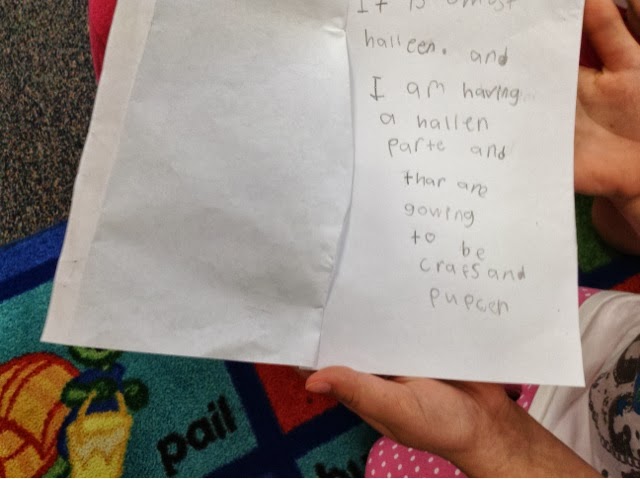 It is omost
halleen. and
I am having
a hallen
parte and
thar are
gowing
to be
crafs and
pupcen
pail